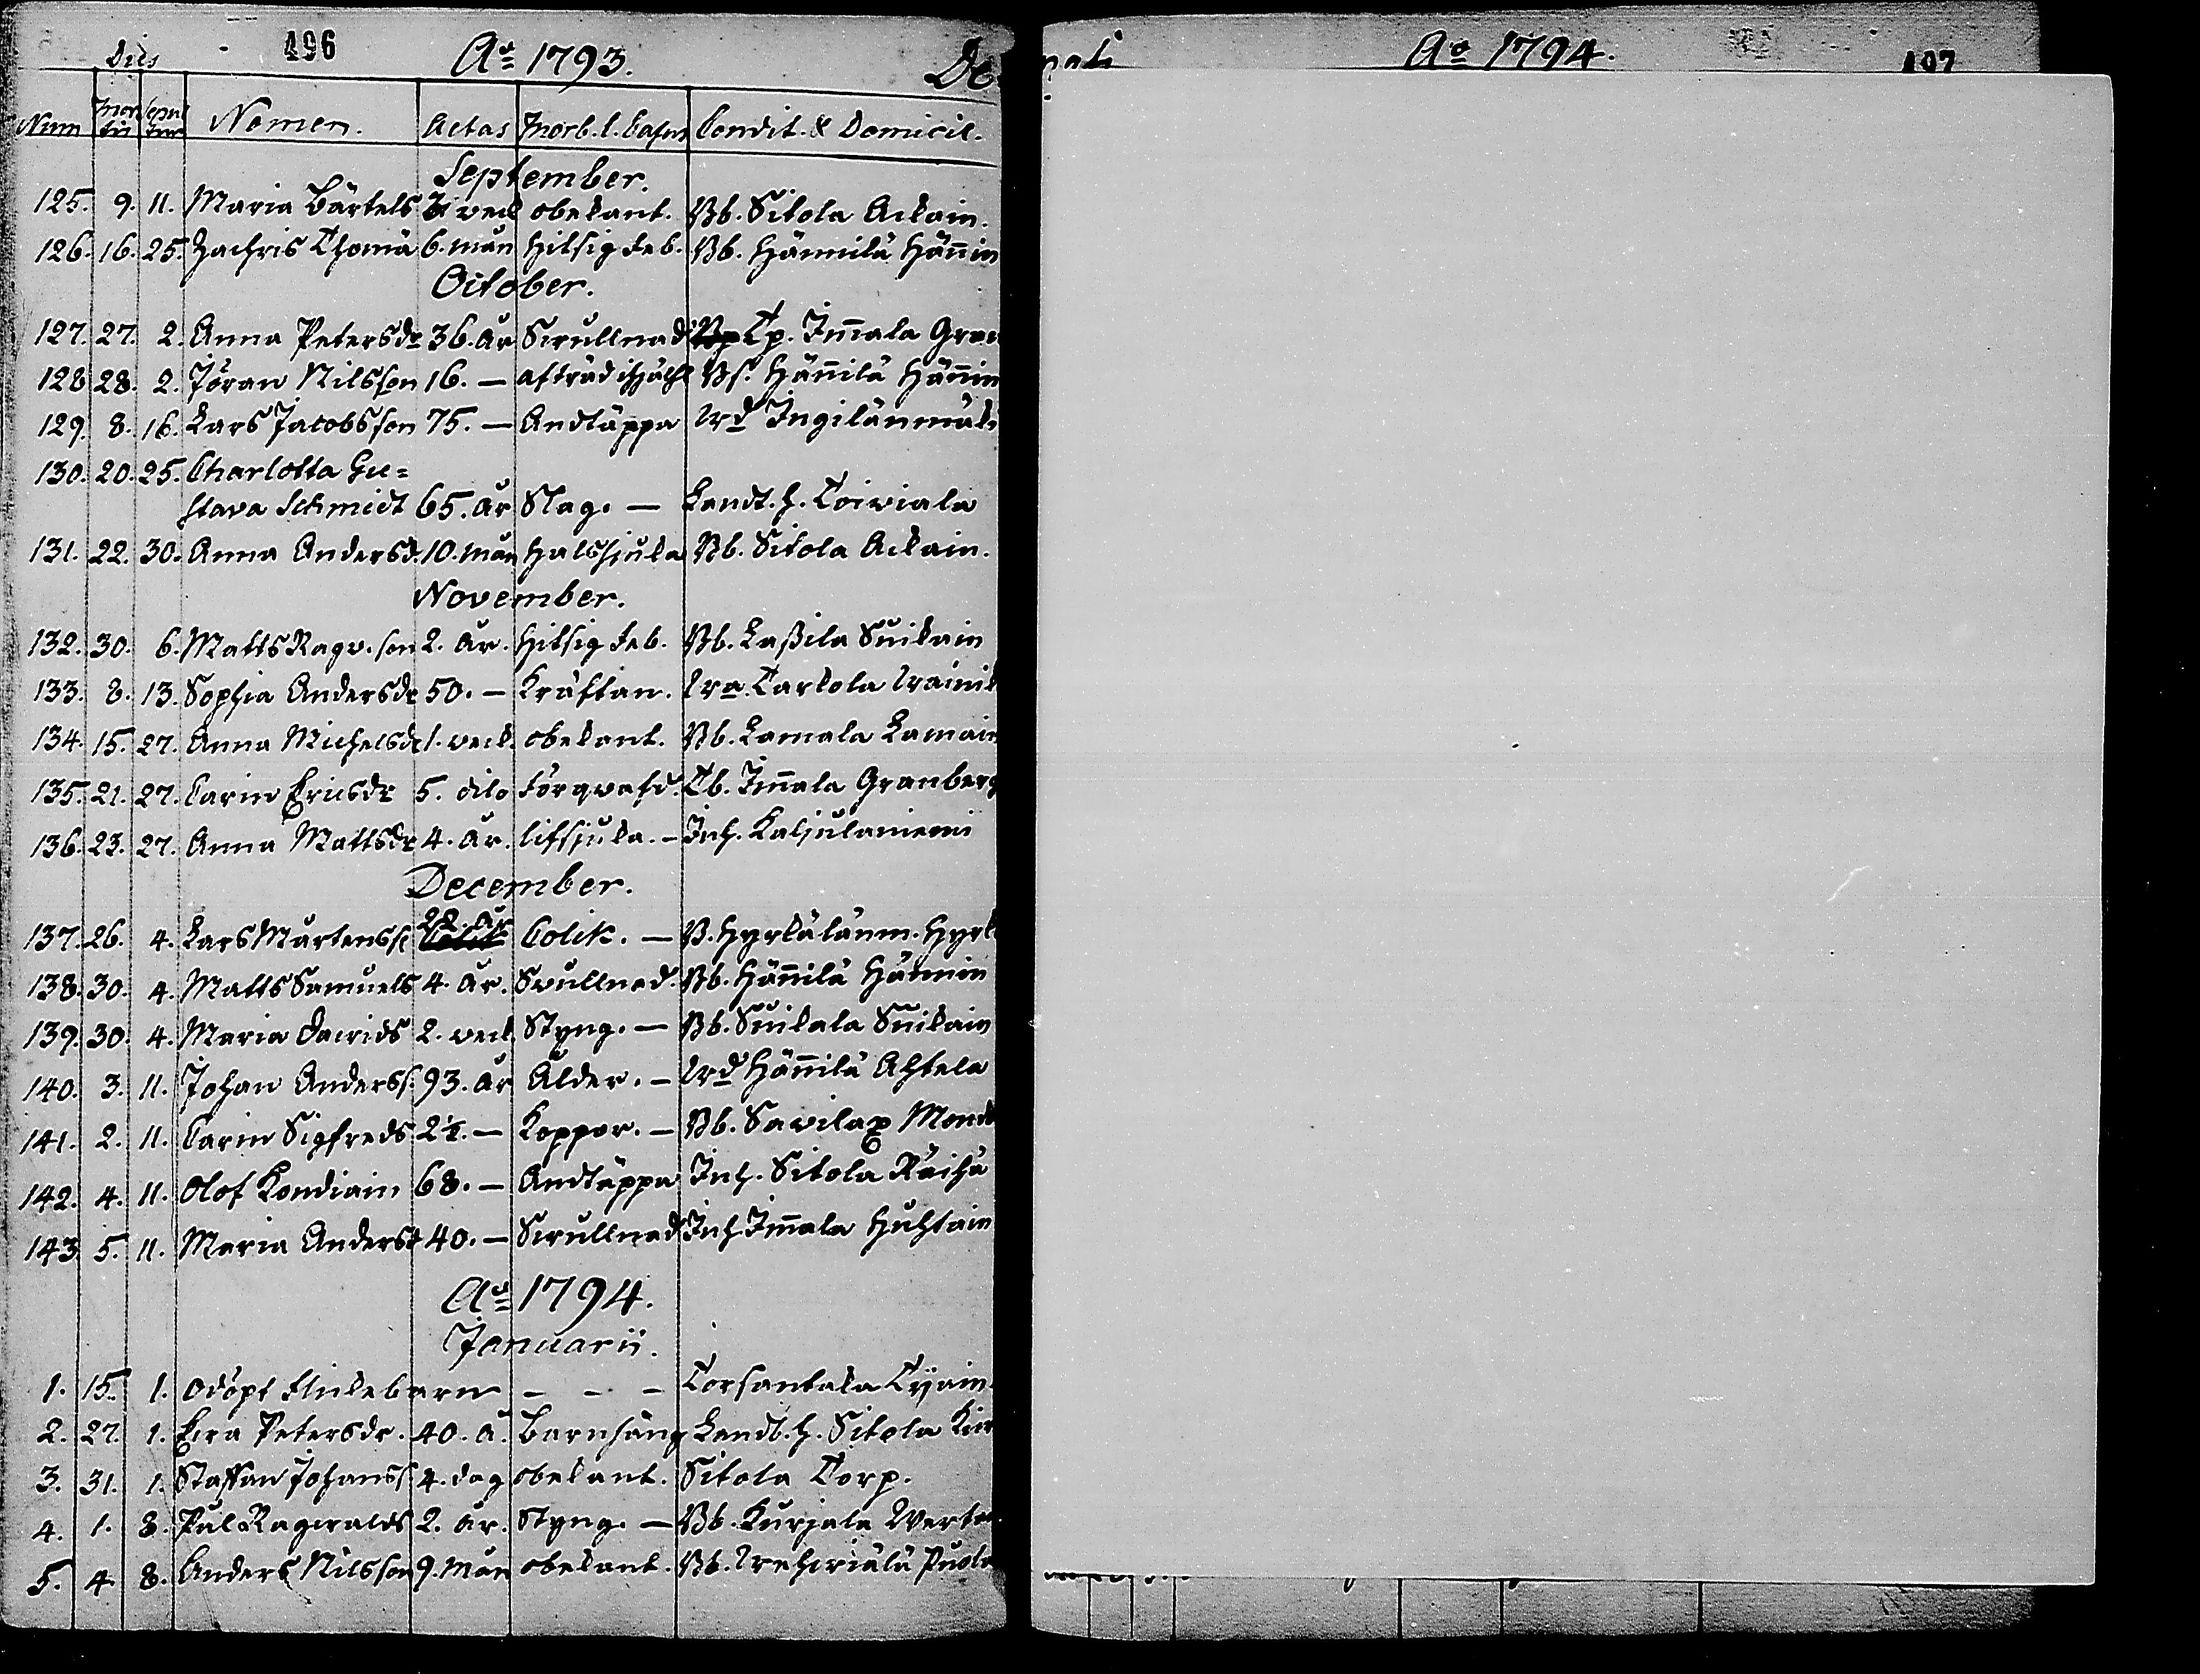 Dies 496 Ao 1793. De
Num Mortis Sepulturæ Nomen. Aetas Morb. l. Casus Condit. & Domicil.
September.
125. 9. 11. Maria Bärtels veck obekant. Bb. Sitola Ackain.
126. 16. 25. Zachris Thomä 6. mån hitsig feb. Bb. Hännilä Häñin
October.
127. 27. 2. Anna Petersdr 36. år Swullnad Tp. Im̃ala Gran
128 28. 2. Jöran Nilsson 16. — Bs. Häñilä Häñin
129. 8. 16. Lars Jacobsson 75. — Andtäppa Ingilänmäk
130. 20. 25. Charlotta Gu=
stava Schmidt 65. år Slag. — Landt. h. Toiviala
131. 22. 30. Anna Andersd. 10. mån halssjuka Bb. Sitola Ackain.
November.
132. 30. 6. Matts Ragv. son 2. år. hitsig feb. Bb. Laßila Suikain
133. 8. 13. Sophia Andersdr 50. — Kräftan. Tarkola
134. 15. 27. Anna Michelsdr 1. veck. obekant. Bb. Lamala Lamain
135. 21. 27. Carin Ericsdr 5. dito förqwafd. Tb. Im̃ala Granberg
136. 23. 27. Anna Mattsdr 4. år. lifsjuka. — Inh. Kaljulaniemi
December.
137. 26. 4. Lars Mårtenss 22. år Colik. — B. Hyrkälänm. Hyrk
138. 30. 4. Matts Samuels 4. år. Svullnad. Bb. Häñilä Hännin
139. 30. 4. Maria Davids 2. veck Styng. — Bb. Suikala Suikain
140. 3. 11. Johan Anderss. 93. år Ålder. — Häñilä Ahtela
141. 2. 11. Carin Sigfreds 2½. — Koppor. — Bb. Savilax Mond
142. 4. 11. Olof Kondiain 68. — Andtäppa Inh. Sitola Räihä
143 5. 11. Maria Andersd 40. — Swullnad Inh. Im̃ala Huhtain
Ao 1794.
Januarii.
1. 15. 1. Odöpt flickebarn - - - Corsantaka Tyjain.
2. 27. 1. Ewa Petersdr. 40. å. Barnsäng Landt. h. Sitola
3. 31. 1. Staffan Johanss 4. dag obekant. Sitola Torp.
4. 1. 8. Pål Ragwalds 2. år. Styng. — Bb. Kurjala
5. 4 8. Anders Nilsson 9. mån obekant. Bb.
nati Ao 1794. 497